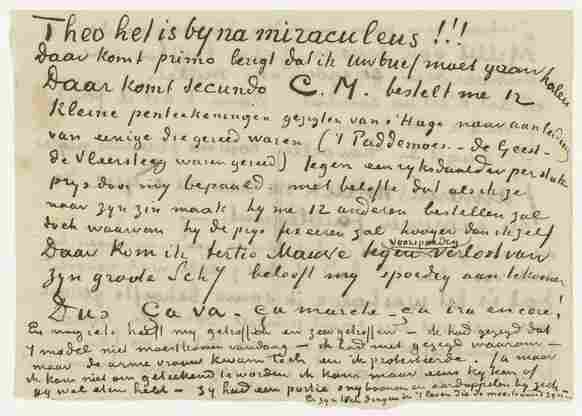 Theo het is byna miraculeus!!!
Daar komt primo berigt dat ik uw brief moet gaan halen
Daar komt secundo C. M. bestelt me 12
kleine penteekeningen gezigten van d'Hage naar aanleiding
van eenige die gereed waren ('t Paddemoes - de Geest -
de Vleersteeg waren gereed) tegen een ryksdaalder per stuk
prys door my bepaald met belofte dat als ik ze
naar zyn zin maak hy me 12 anderen bestellen zal
doch waarvan hy de prys fixeeren zal hooger dan ik zelf
Daar kom ik tertio Mauve tegen voorspoedig verlost van
zyn groote Schy belooft my spoedig aan te komen!
Dus Ca va - ca marche - ca ira encore!
En nog iets heeft my getroffen en zeer getroffen - ik had gezegd dat
't model niet moest komen vandaag - ik had niet gezegd waarom -
maar de arme vrouw kwam toch en ik protesteerde. Ja maar
ik kom niet om geteekend te worden ik kom maar eens kyken of
gy wat eten hebt - zy had een portie snyboonen en aardappelen by zich -
Er zyn toch dingen in 't leven die de moeite waard zyn